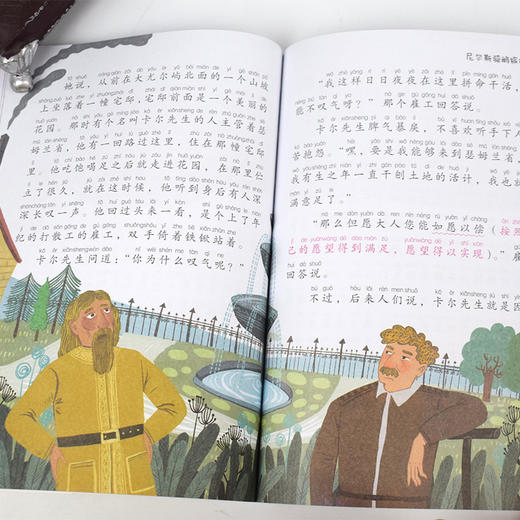 她说，从前在大尤尔屿北面的一个山坡
上坐落着一幢宅邸，宅邸前面是一个美丽的
花园。那时有个名叫卡尔先生的人主宰着瑟
姆兰省，他有一回路过这里，住在那幢宅邸
里。他吃饱喝足之后就走进花园，在那里伫
立了很久，就在这时候，他听到身后有人深
深长叹一声。他回过头来一看，是个上了年
纪的打散工的雇工，双手倚着铁锹站着。
卡尔先生问道：“你为什么叹气呢？”
尼尔斯骑鹅旅
“我这样日日夜夜在这里拼命干活，
能不叹气呀？”那个雇工回答说。
卡尔先生脾气暴戾，不喜欢听手下人
苦抱怨。“嘿，要是我能够来到瑟姆兰省，
我有生之年一直干刨土地的活计，我也就
满意足了。”
“那么但愿大人您能如愿以偿（按照
己的愿望得到满足、愿望得以实现）。”雇
回答说。
不过，后来人们说，卡尔先生就是因